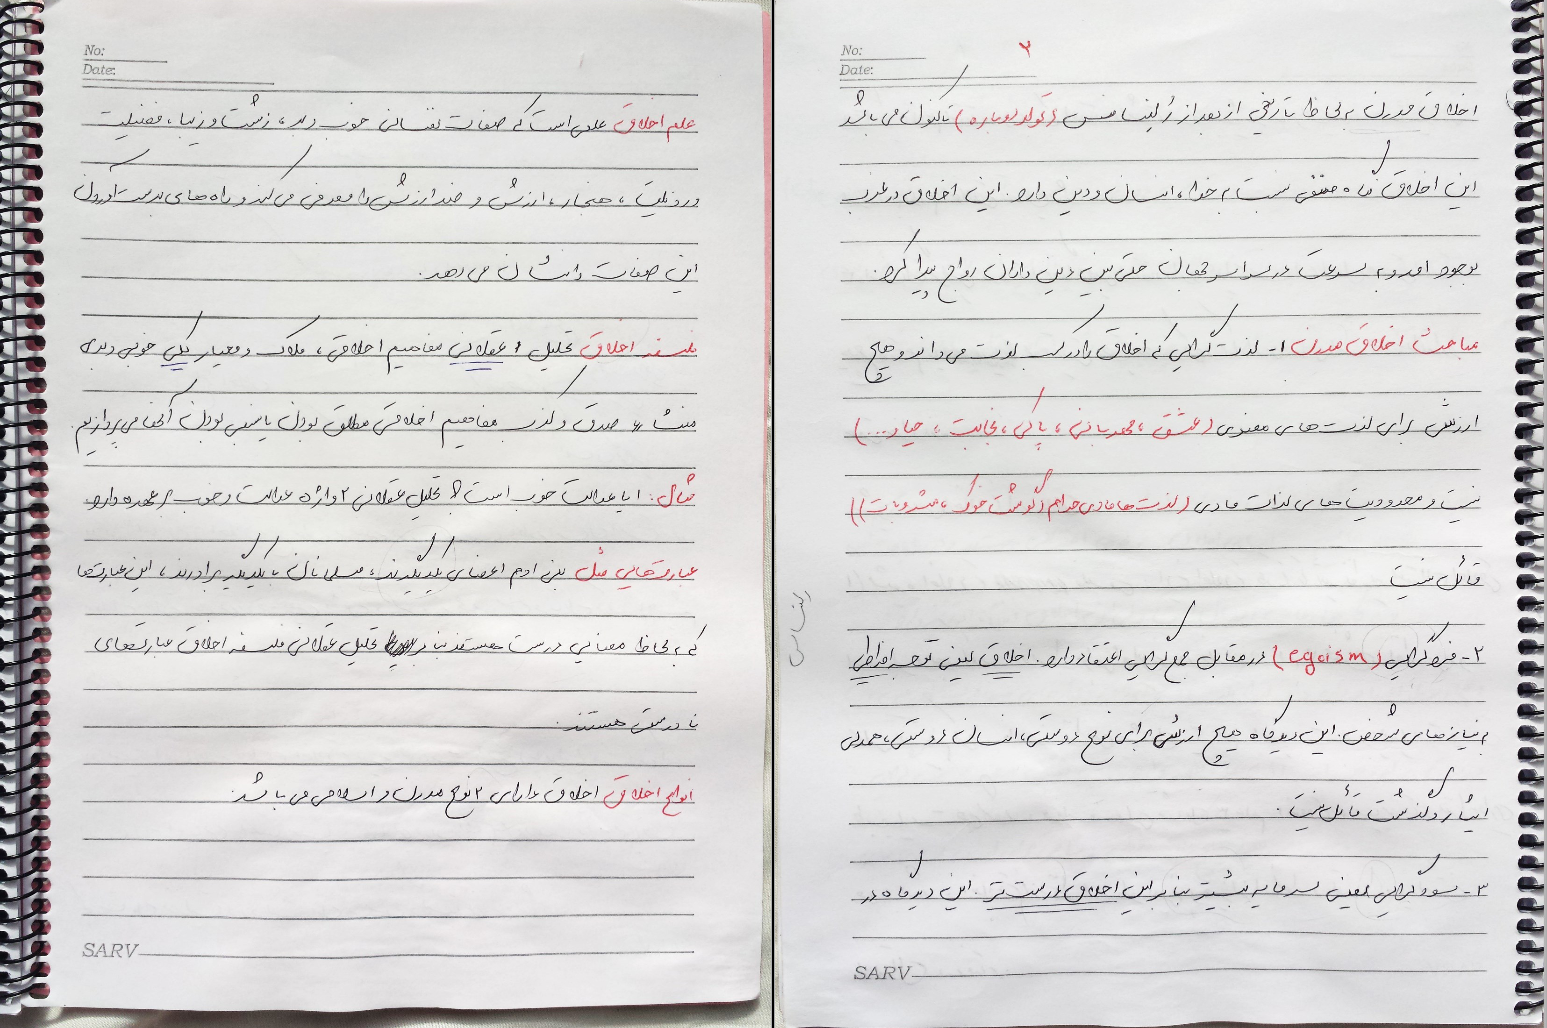 No:
Date:
علم اخلاق علمی است که صفات نفسانی خوب و بد، زشت و زیبا، فضیلت
و رذیلت، هنجار، ارزش و ضد ارزش را معرفی می کند و راه های بدست آوردن
این صفات را نشان می دهد.
فلسفه اخلاق تحلیل عقلانی مفاهیم اخلاقی، ملاک و معیار یکی خوبی و بدی
منشاء صدق و کذب مفاهیم اخلاقی مطلق بودن یا نسبی بودن آنها می پردازیم.
مثال: ایا عدالت خوب است؟ تحلیل عقلانی ۲ واژه عدالت و خوب بر عهده دارد
عبارتهایی مثل بنی ادم اعضای یکدیگرند، مسلمانان با یکدیگر برادرند، این عبارتها
که به لحاظ معنایی درست هستند بنا بر تحلیل عقلانی فلسفه اخلاق عبارتهای
نادرستی هستند.
انواع اخلاق اخلاق دارای ۲ نوع مدرن و اسلامی می باشد.
SARV
No:
Date:
۲
اخلاق مدرن به لحاظ تاریخی از بعد از رنیسانس (تولد دوباره) تاکنون می باشد
این اخلاق نگاه منفی نسبت به خدا، انسان و دین دارد. این اخلاق در غرب
بوجود امد و به سرعت در سراسر جهان حتی بین دین داران رواج پیدا کرد.
مباحث اخلاق مدرن ۱- لذت گرایی که اخلاق را درک لذت می داند و هیچ
ارزشی برای لذت های معنوی (عشق، مهربانی، پاکی، نجابت، حیا و...)
نیست و محدودیت های لذات مادی (لذت ها مادی حرام (گوشت خوک، مشروبات))
قائل نیست
رنسانس
۲- فردگرایی (egoism) در مقابل جمع گرایی اعتقاد دارد. اخلاق یعنی توجه افراطی
به نیازهای شخص. این دیدگاه هیچ ارزشی برای نوع دوستی، انسان دوستی، همدلی
ایثار و گذشت قائل نیست.
۳- سودگرایی یعنی سرمایه بیشتر بنابراین اخلاق درست تر. این دیدگاه در
SARV